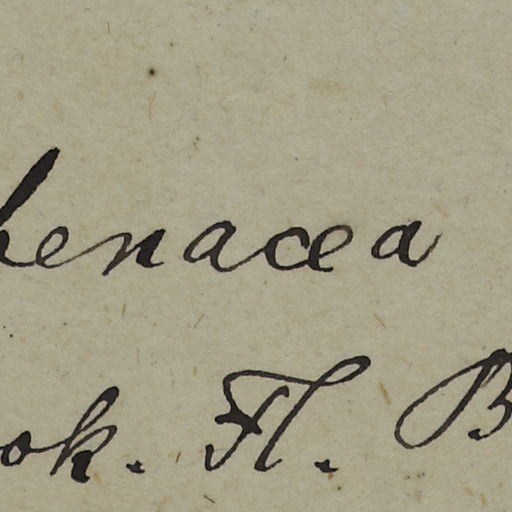 henacea
ok. Fl. B